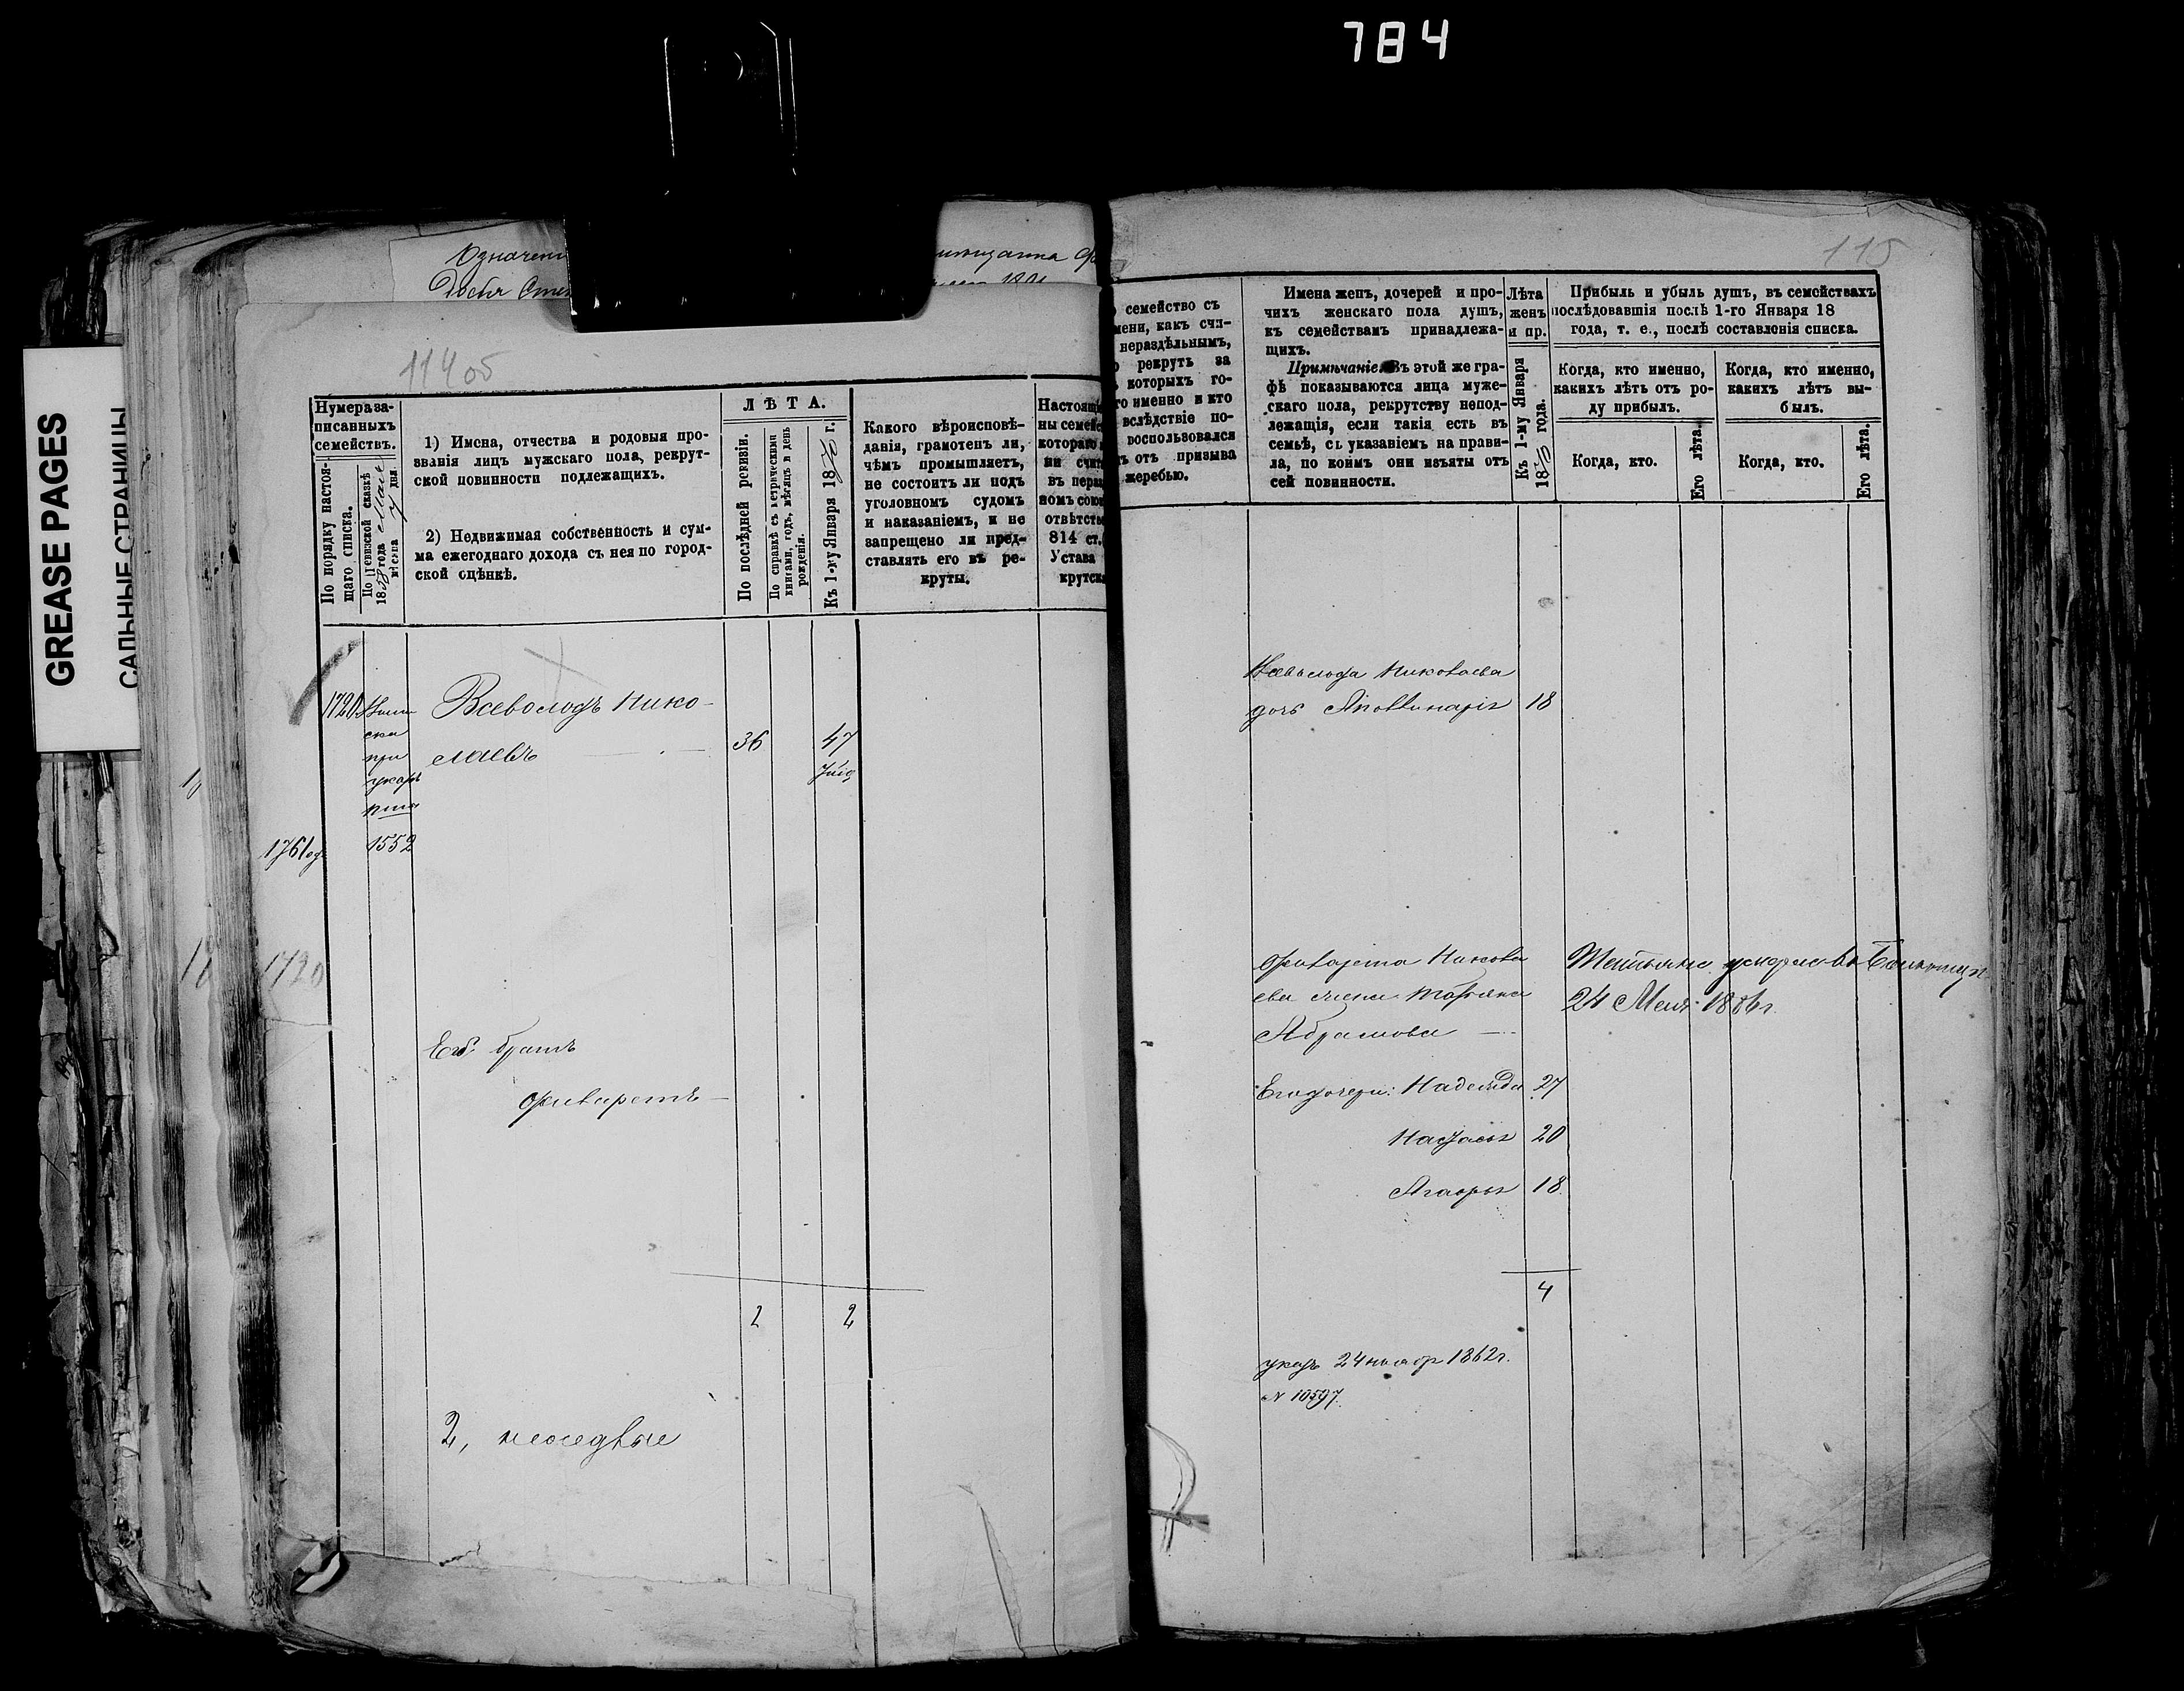 784
GREASE PAGES
САЛЬНЫЕ СТРАНИЦЫ
114 об
Нумера за-
писанныхъ
семействъ.
По порядку настоя-
щаго списка.
По Ревизской сказкѣ
1858 года Мая
мѣсяца дня.
1) Имена, отчества и родовыя про-
званія лицъ мужскаго пола, рекрут-
ской повинности подлежащихъ.
2) Недвижимая собственность и сум-
ма ежегоднаго дохода съ нея по город-
ской оцѣнкѣ.
ЛѢТА.
По послѣдней ревизіи.
По справкѣ съ метрическими
книгами, годъ, мѣсяцъ и день
рожденія.
Къ 1-му Января 1870 г.
Какого вѣроисповѣ-
данія, грамотенъ ли,
чѣмъ промышляетъ,
не состоитъ ли подъ
уголовнымъ судомъ
и наказаніемъ, и не
запрещено ли пред-
ставлять его въ ре-
круты.
Настоящ
ны семейс
котораго
ни счит
въ нераз
номъ союз
отвѣтств
814 ст.
Устава
крутск
1720
Всеволодъ Нико-
лаевъ
36
47
при
указѣ
1552
1761
1720
Его братъ
Филаретъ
2
2
2, неседвые
115
семейство съ
мени, какъ счи-
нераздѣльнымъ,
рекрутъ за
которыхъ го-
го именно и кто
вслѣдствіе по-
воспользовался
ъ отъ призыва
жеребью.
Имена женъ, дочерей и про-
чихъ женскаго пола душъ,
къ семействамъ принадлежа-
щихъ.
Примѣчаніе. Въ этой же гра-
фѣ показываются лица муже-
скаго пола, рекрутству непод-
лежащія, если такія есть въ
семьѣ, съ указаніемъ на прави-
ла, по коимъ они изъяты отъ
сей повинности.
Лѣта
женъ
и пр.
Къ 1-му Января
1870 года.
Прибыль и убыль душъ, въ семействахъ
послѣдовавшія послѣ 1-го Января 18
года, т. е., послѣ составленія списка.
Когда, кто именно,
какихъ лѣтъ отъ ро-
ду прибылъ.
Когда, кто именно,
какихъ лѣтъ вы-
былъ.
Когда, кто.
Его лѣта.
Когда, кто.
Его лѣта.
Всеволода Николаева
дочь Аполлинарія 18
Филарета Никола
ева жена Татьяна
Абрамова
Татьяна умерла
24 Мая
Его дочери: Надежда 27
Настасья 20
18
4
указъ 24 ноябр 1862 г.
№ 10597.